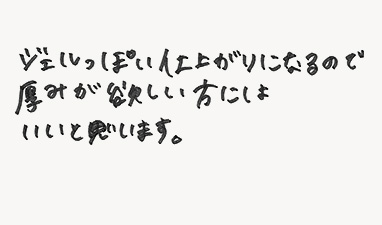 ジェルっぽい仕上がりになるので
厚みが欲しい方には
いいと思います。